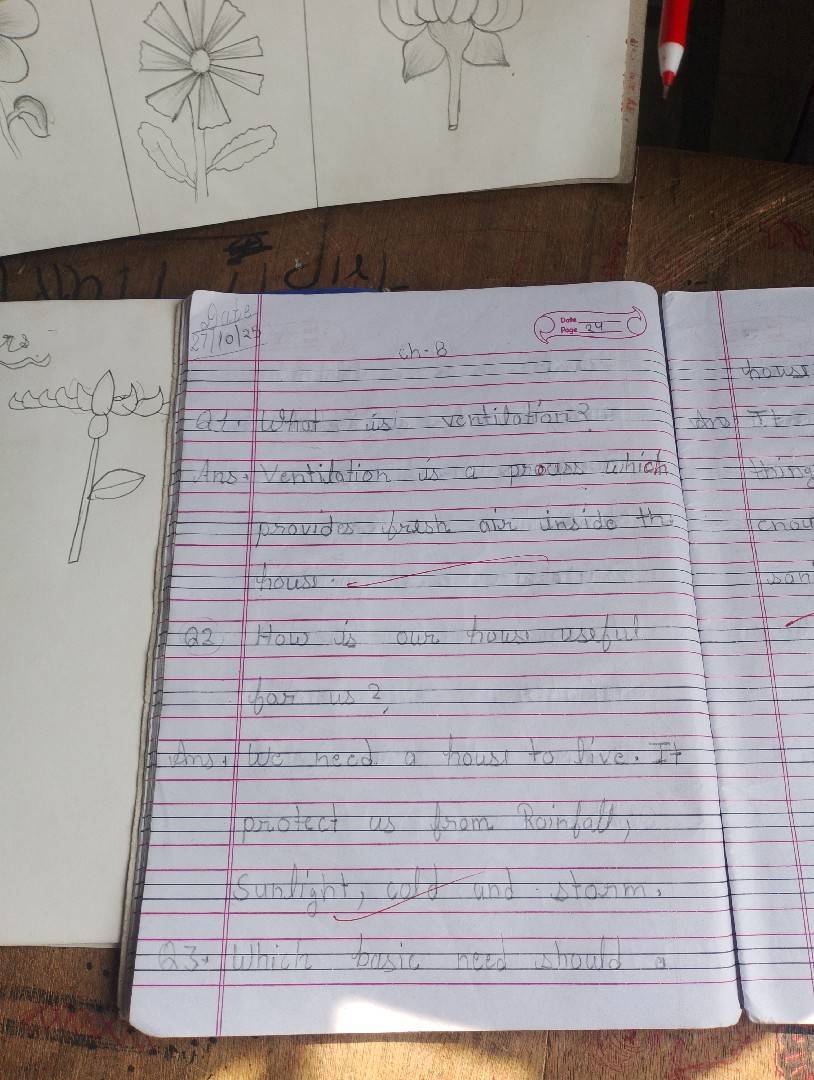 Date
27/10/25
Date
Page 24
ch-8
Q1. What is ventilation?
Ans. Ventilation is a process which
provides fresh air inside the
house.
Q2 How is our house useful
for us?
Ans. We need a house to live. It
protect us from Rainfall,
Sunlight, cold and storm.
Q3. Which basic need should a
house
Ans It
thing